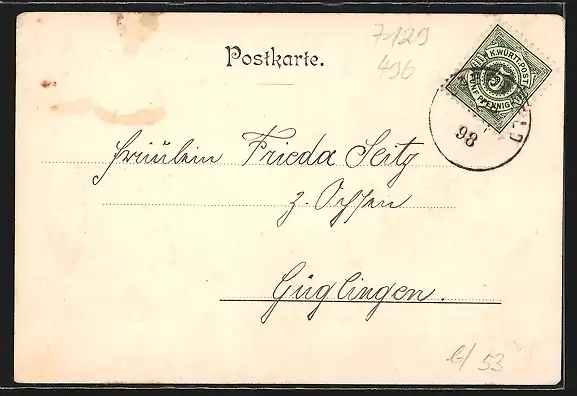 7129
496
Postkarte.
K. WÜRTT. POST
5
FÜNF PFENNIG
98
Fräulein Frieda Seitz
z. Ochsen
Güglingen.
53